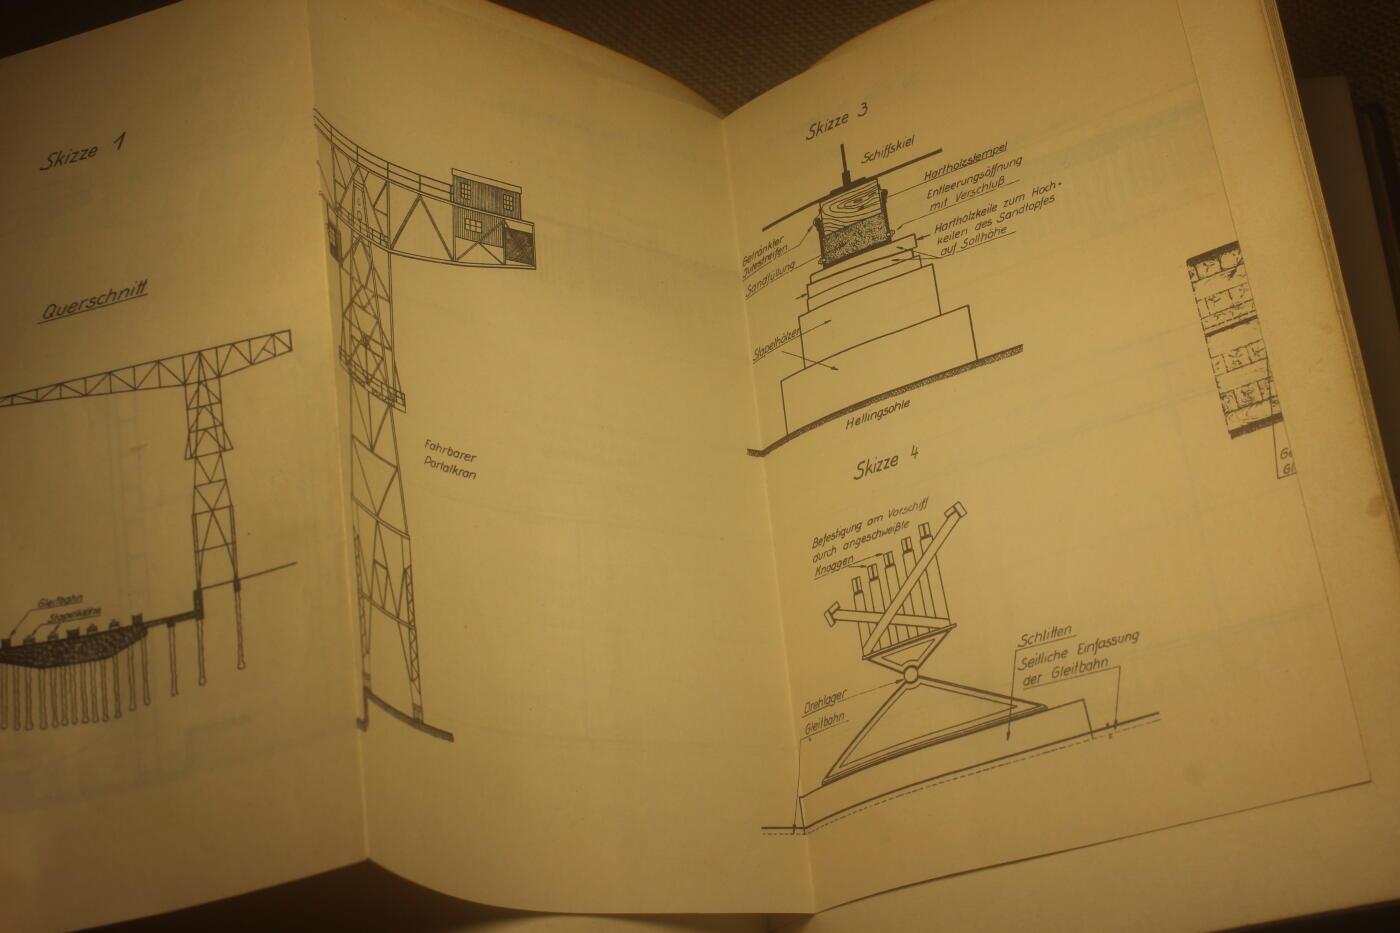 Skizze 1
Querschnitt
Gleitbahn
Stapelklötze
Fahrbarer
Portalkran
Skizze 3
Schiffskiel
Hartholzstempel
Entleerungsöffnung
mit Verschluß
Hartholzkeile zum Hoch-
keilen des Sandtopfes
auf Sollhöhe
Getränkter
Jutestreifen
Sandfüllung
Stapelhölzer
Hellingsohle
Skizze 4
Befestigung am Vorschiff
durch angeschweißte
Knaggen
Schlitten
Seitliche Einfassung
der Gleitbahn
Drehlager
Gleitbahn
Ge
Gl